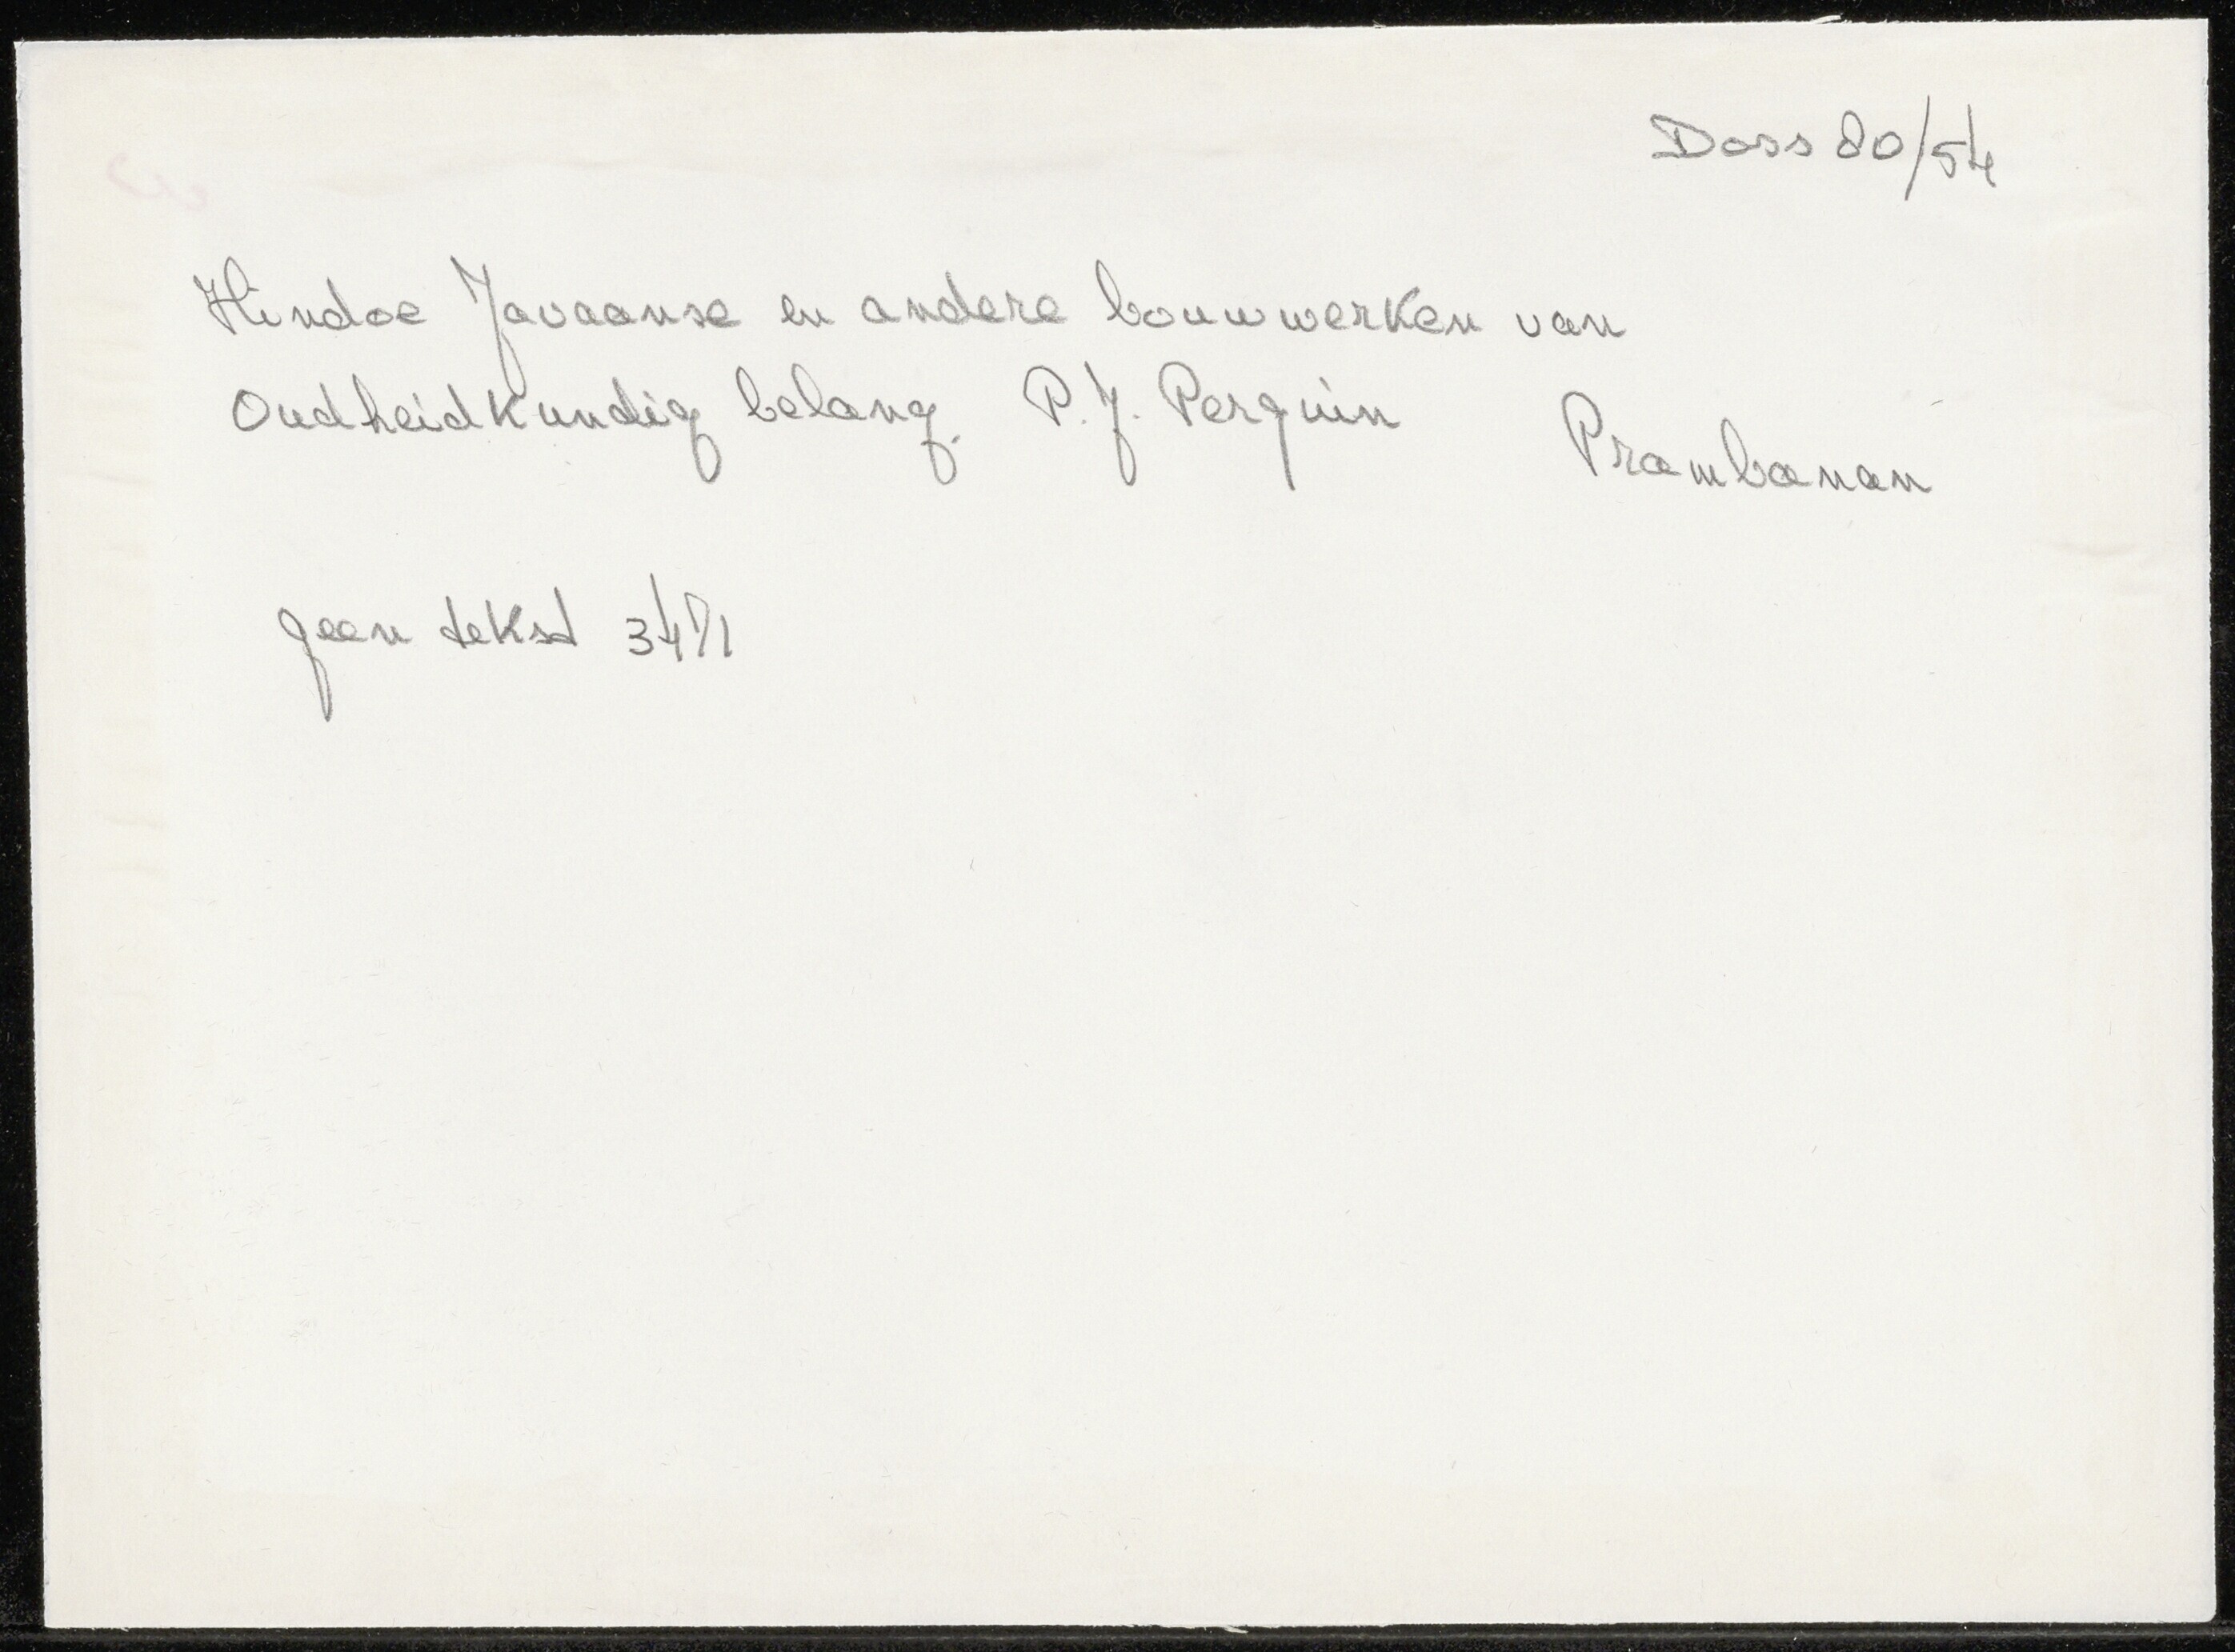 Doss 80/54
Hindoe Javaanse en andere bouwwerken van
Oudheidkundig belang. P.J. Perquin
Prambanan
geen tekst 3471